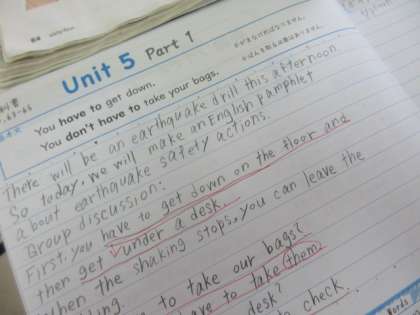 Unit 5 Part 1
You have to get down.
You don't have to take your bags.
There will be an earthquake drill this afternoon.
So today, we will make an English pamphlet
about earthquake safety actions.
Group discussion:
First, you have to get down on the floor and
then get under a desk.
When the shaking stops, you can leave the
to take our bags?
have to take them.
desk?
to check.
Words